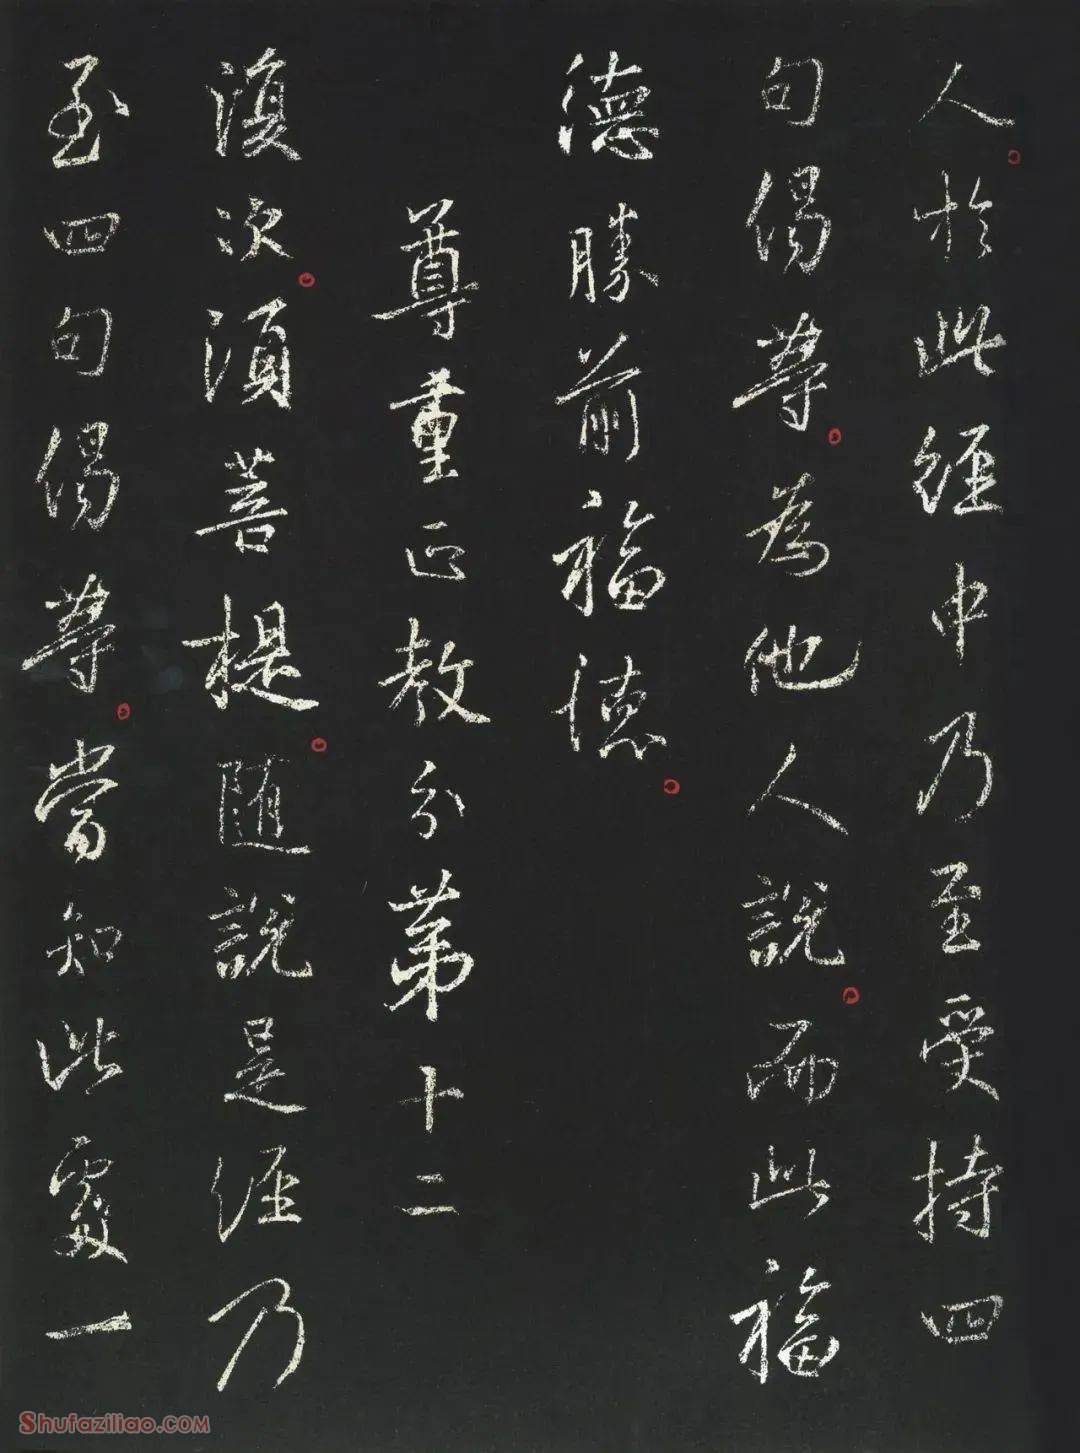 人於此經中乃至受持四
句偈等為他人說而此福
德勝前福德
尊重正教分第十二
復次須菩提隨說是經乃
至四句偈等當知此處一
Shufaziliao.COM